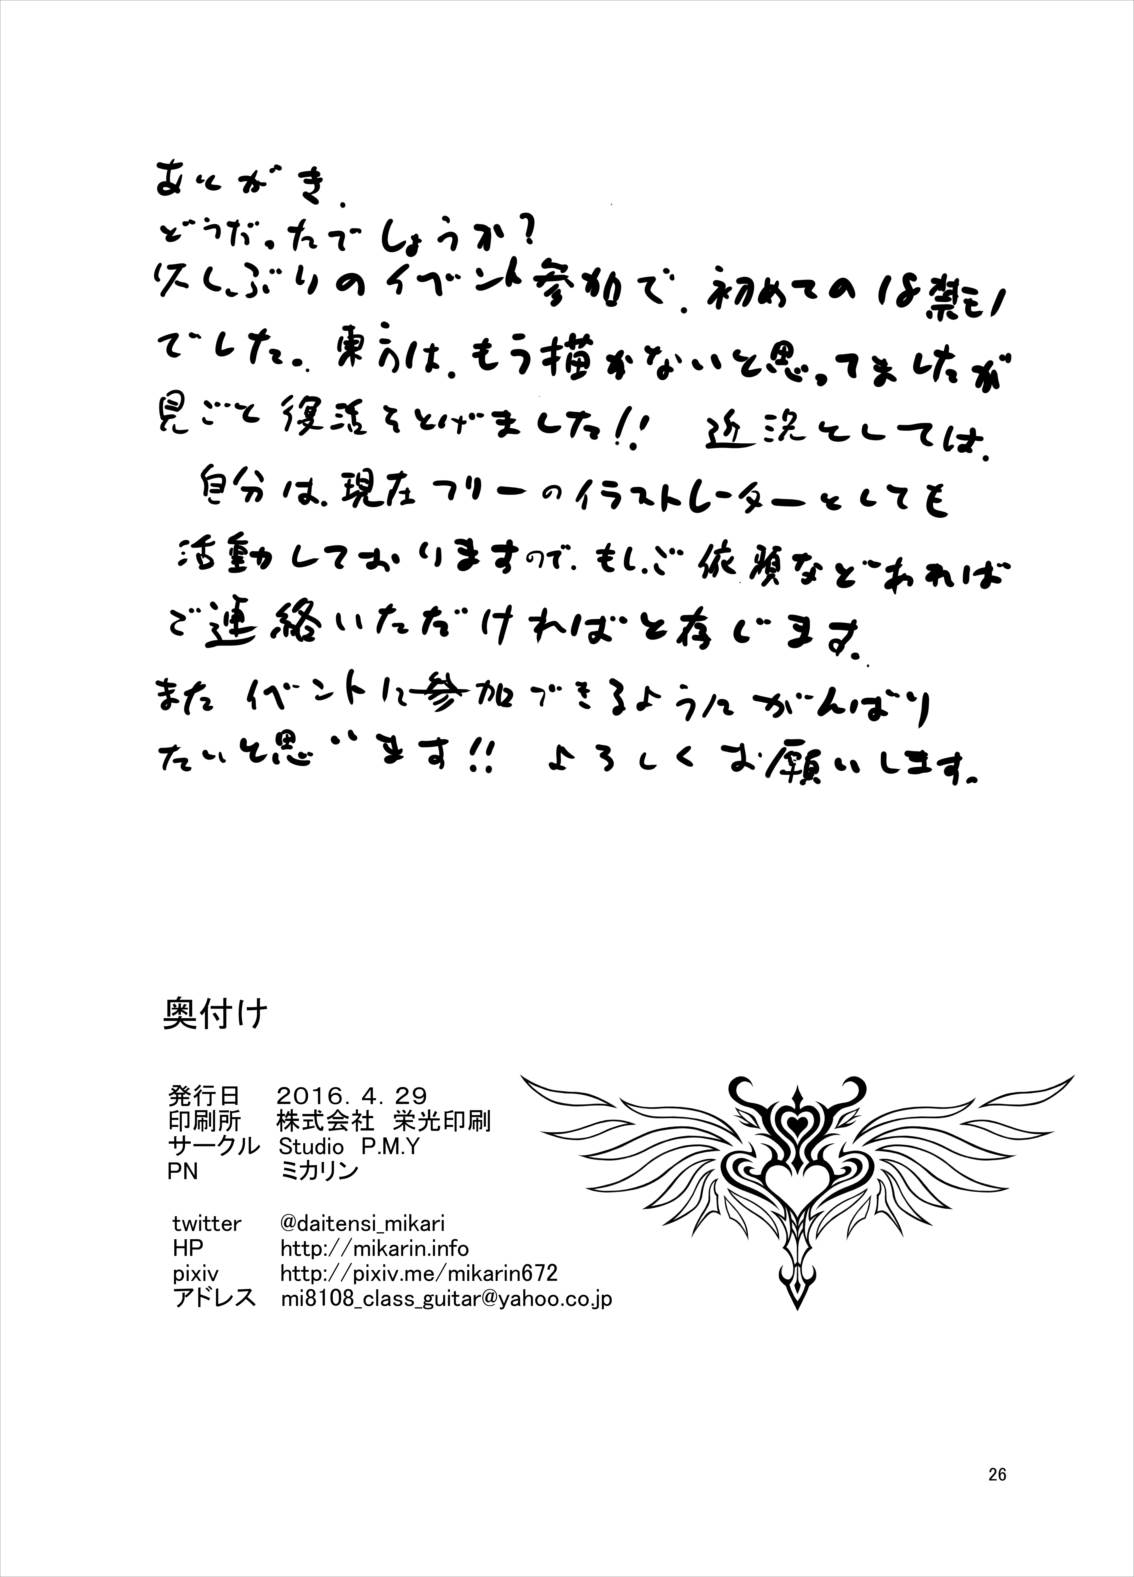 あとがき.
どうだったでしょうか?
久しぶりのイベント参加で.初めての18禁モノ
でした。東方は.もう描かないと思ってましたが
見ごと復活をとげました!! 近況としては.
自分は.現在フリーのイラストレーターとしても
活動しておりますので.もし.ご依頼などあれば
ご連絡いただければと存じます.
またイベントに参加できるようにがんばり
たいと思います!! よろしくお願いします。
奥付け
発行日 2016.4.29
印刷所 株式会社 栄光印刷
サークル Studio P.M.Y
PN ミカリン
twitter @daitensi_mikari
HP http://mikarin.info
pixiv http://pixiv.me/mikarin672
アドレス mi8108_class_guitar@yahoo.co.jp
26